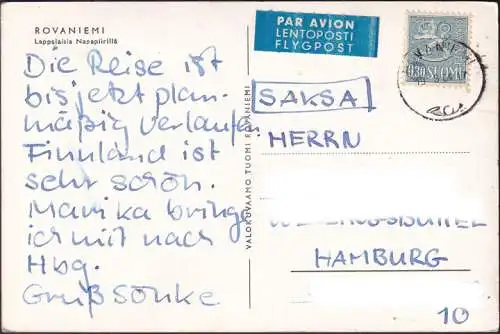 ROVANIEMI
Lappalaisia Napapiirillä
Die Reise ist
bis jetzt plan-
mäßig verlaufen.
Finnland ist
sehr schön.
Marika bringe
ich mit nach
Hbg.
Gruß Sönke
VALOKUVAAMO TUOMI ROVANIEMI
PAR AVION
LENTOPOSTI
FLYGPOST
0,30 SUOMI
SAKSA
HERRN
HAMBURG
10